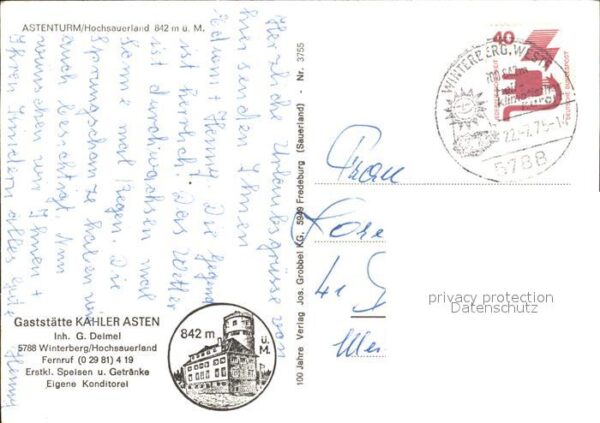 ASTENTURM/Hochsauerland 842 m ü. M.
Herzliche Urlaubsgrüße von
hier senden Ihnen
Edwin + Henny. Die Gegend
ist herrlich. Das Wetter
ist durchwachsen mal
Sonne mal Regen. Die
Sprungschanze haben wir
auch besichtigt. Nun
wünschen wir Ihnen +
Ihren Kindern alles gute
Henny
Gaststätte KAHLER ASTEN
Inh. G. Deimel
5788 Winterberg/Hochsauerland
Fernruf (0 29 81) 4 19
Erstkl. Speisen u. Getränke
Eigene Konditorei
842 m
ü.
M.
100 Jahre Verlag Jos. Grobbel KG, 5949 Fredeburg (Sauerland) · Nr. 3755
40
DEUTSCHE BUNDESPOST
WINTERBERG, WESTF
5788
Frau
41
privacy protection
Datenschutz